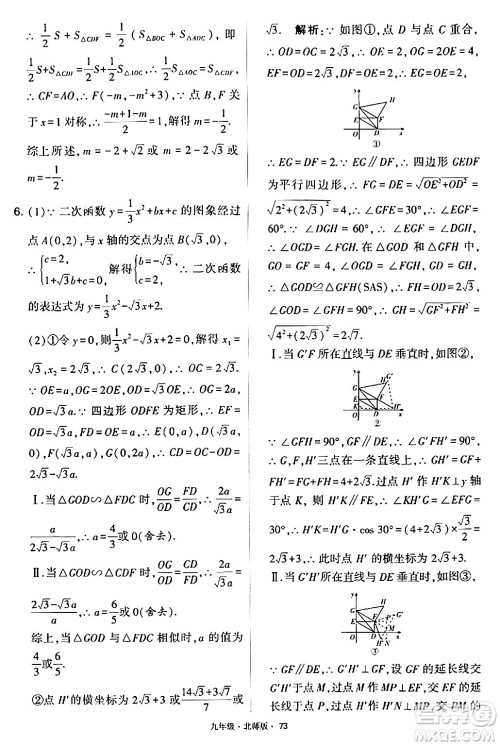 ∴ 1/2 S + S△CDF = S△BOC + S△AOC，即
1/2 S + S△CDF = 1/2 S + S△AOC，∴ S△CDF = S△AOC，
∴ CF=AO，∴ F(-m, -m²+3)，∵ 点B,F关
于x=1对称，∴ (-m+1-m)/2 = 1，∴ m = -1/2.
综上所述，m = -1/2 或 m = -√3 或
m = -1/2.
6. (1)∵ 二次函数 y = 1/3 x² + bx + c 的图象经过
点A(0,2)，与x轴的交点为点B(√3,0)，
∴ {c=2, 1+√3b+c=0, 解得{b=-√3, c=2, ∴ 二次函数
的表达式为 y = 1/3 x² - √3x + 2.
(2)①令 y=0，则 1/3 x² - √3x + 2 = 0，解得 x₁ =
√3，x₂ = 2√3，∴ C(2√3,0)，∴ OC = 2√3.
∵ OE=a，OG=2OE，∴ OG=2OE=2a，
OD=√3a. ∵ 四边形ODFE为矩形，∴ EF=
OD=√3a，FD=OE=a，∴ E(0,a)，
D(√3a,0)，F(√3a,a)，G(0,2a)，∴ CD=
OC-OD=2√3-√3a.
Ⅰ.当△GOD∽△FDC时，OG/FD = OD/CD，∴ 2a/a =
√3a/(2√3-√3a)，∴ a = 4/3 或0(舍去).
Ⅱ.当△GOD∽△CDF时，OG/CD = OD/FD，∴
2a/(2√3-√3a) = √3a/a，∴ a = 6/5 或0(舍去).
综上，当△GOD与△FDC相似时，a的值为
4/3 或 6/5.
②点H′的横坐标为 2√3+3 或 (14√7-2√21)/7 或
√3. 解析：∵ 如图①，点D与点C重合，
∴ OD=OC=2√3，∴ OE=2，OG=2OE=4，
EF=OD=2√3，DF=OE=2.
y
G
H
E
F
O
D
x
①
∴ EG=DF=2.∵ EG∥DF，∴ 四边形GEDF
为平行四边形，∴ FG=DE=√(OE²+OD²)=
√(2²+(2√3)²)=4，∴ ∠GFE=30°，∴ ∠EGF=
60°.∵ ∠DGH=60°，∴ ∠EGF=∠DGH，
∴ ∠OGD=∠FGH.在△GOD和△GFH中，
GO=GF=4，∠OGD=∠FGH，GD=GH，
∴ △GOD≌△GFH(SAS)，∴ FH=OD=2√3，
∠GOD=∠GFH=90°，∴ GH=√(GF²+FH²)=
√(4²+(2√3)²)=2√7.
Ⅰ.当G′F所在直线与DE垂直时，如图②，
y
G
E
K
O
D
H′
x
②
∵ ∠GFH=90°，GF∥DE，∴ ∠GFG′=90°，
∴ G,F,H′三点在一条直线上，∴ GH′=GF+
FH′=4+2√3.过点H′作H′K⊥y轴，交y轴
于点K，则H′K∥FE，∴ ∠KH′G=∠GFE=
30°，∴ H′K=H′G·cos 30°=(4+2√3)×√3/2=
2√3+3，∴ 此时点H′的横坐标为2√3+3.
Ⅱ.当G′H′⊥DE时，如图③，
y
G
H
G′
E
M
P
O
D
H′
N
x
③
∵ GF∥DE，∴ G′H′⊥GF，设GF的延长线交
G′H′于点M，过点M作MP⊥x轴，交DF的延
长线于点P，PM的延长线与过点
九年级·北师版·73